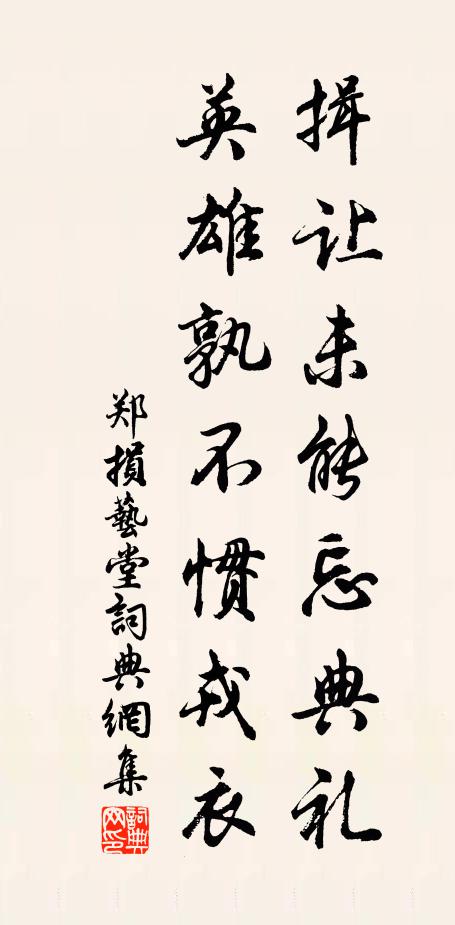 揖让未能忘典礼
英雄孰不惯戎衣
郑損藝堂詞典網集
詞典網印